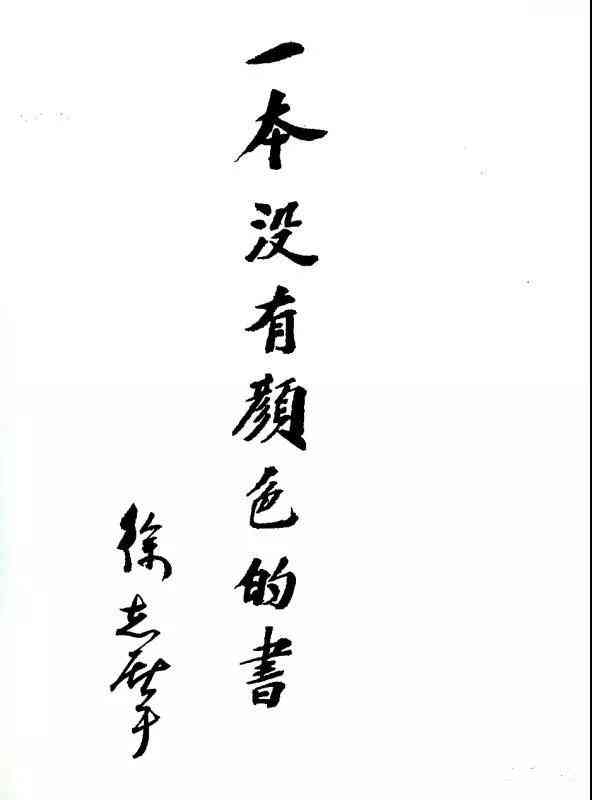 一本没有顏色的書
徐志摩